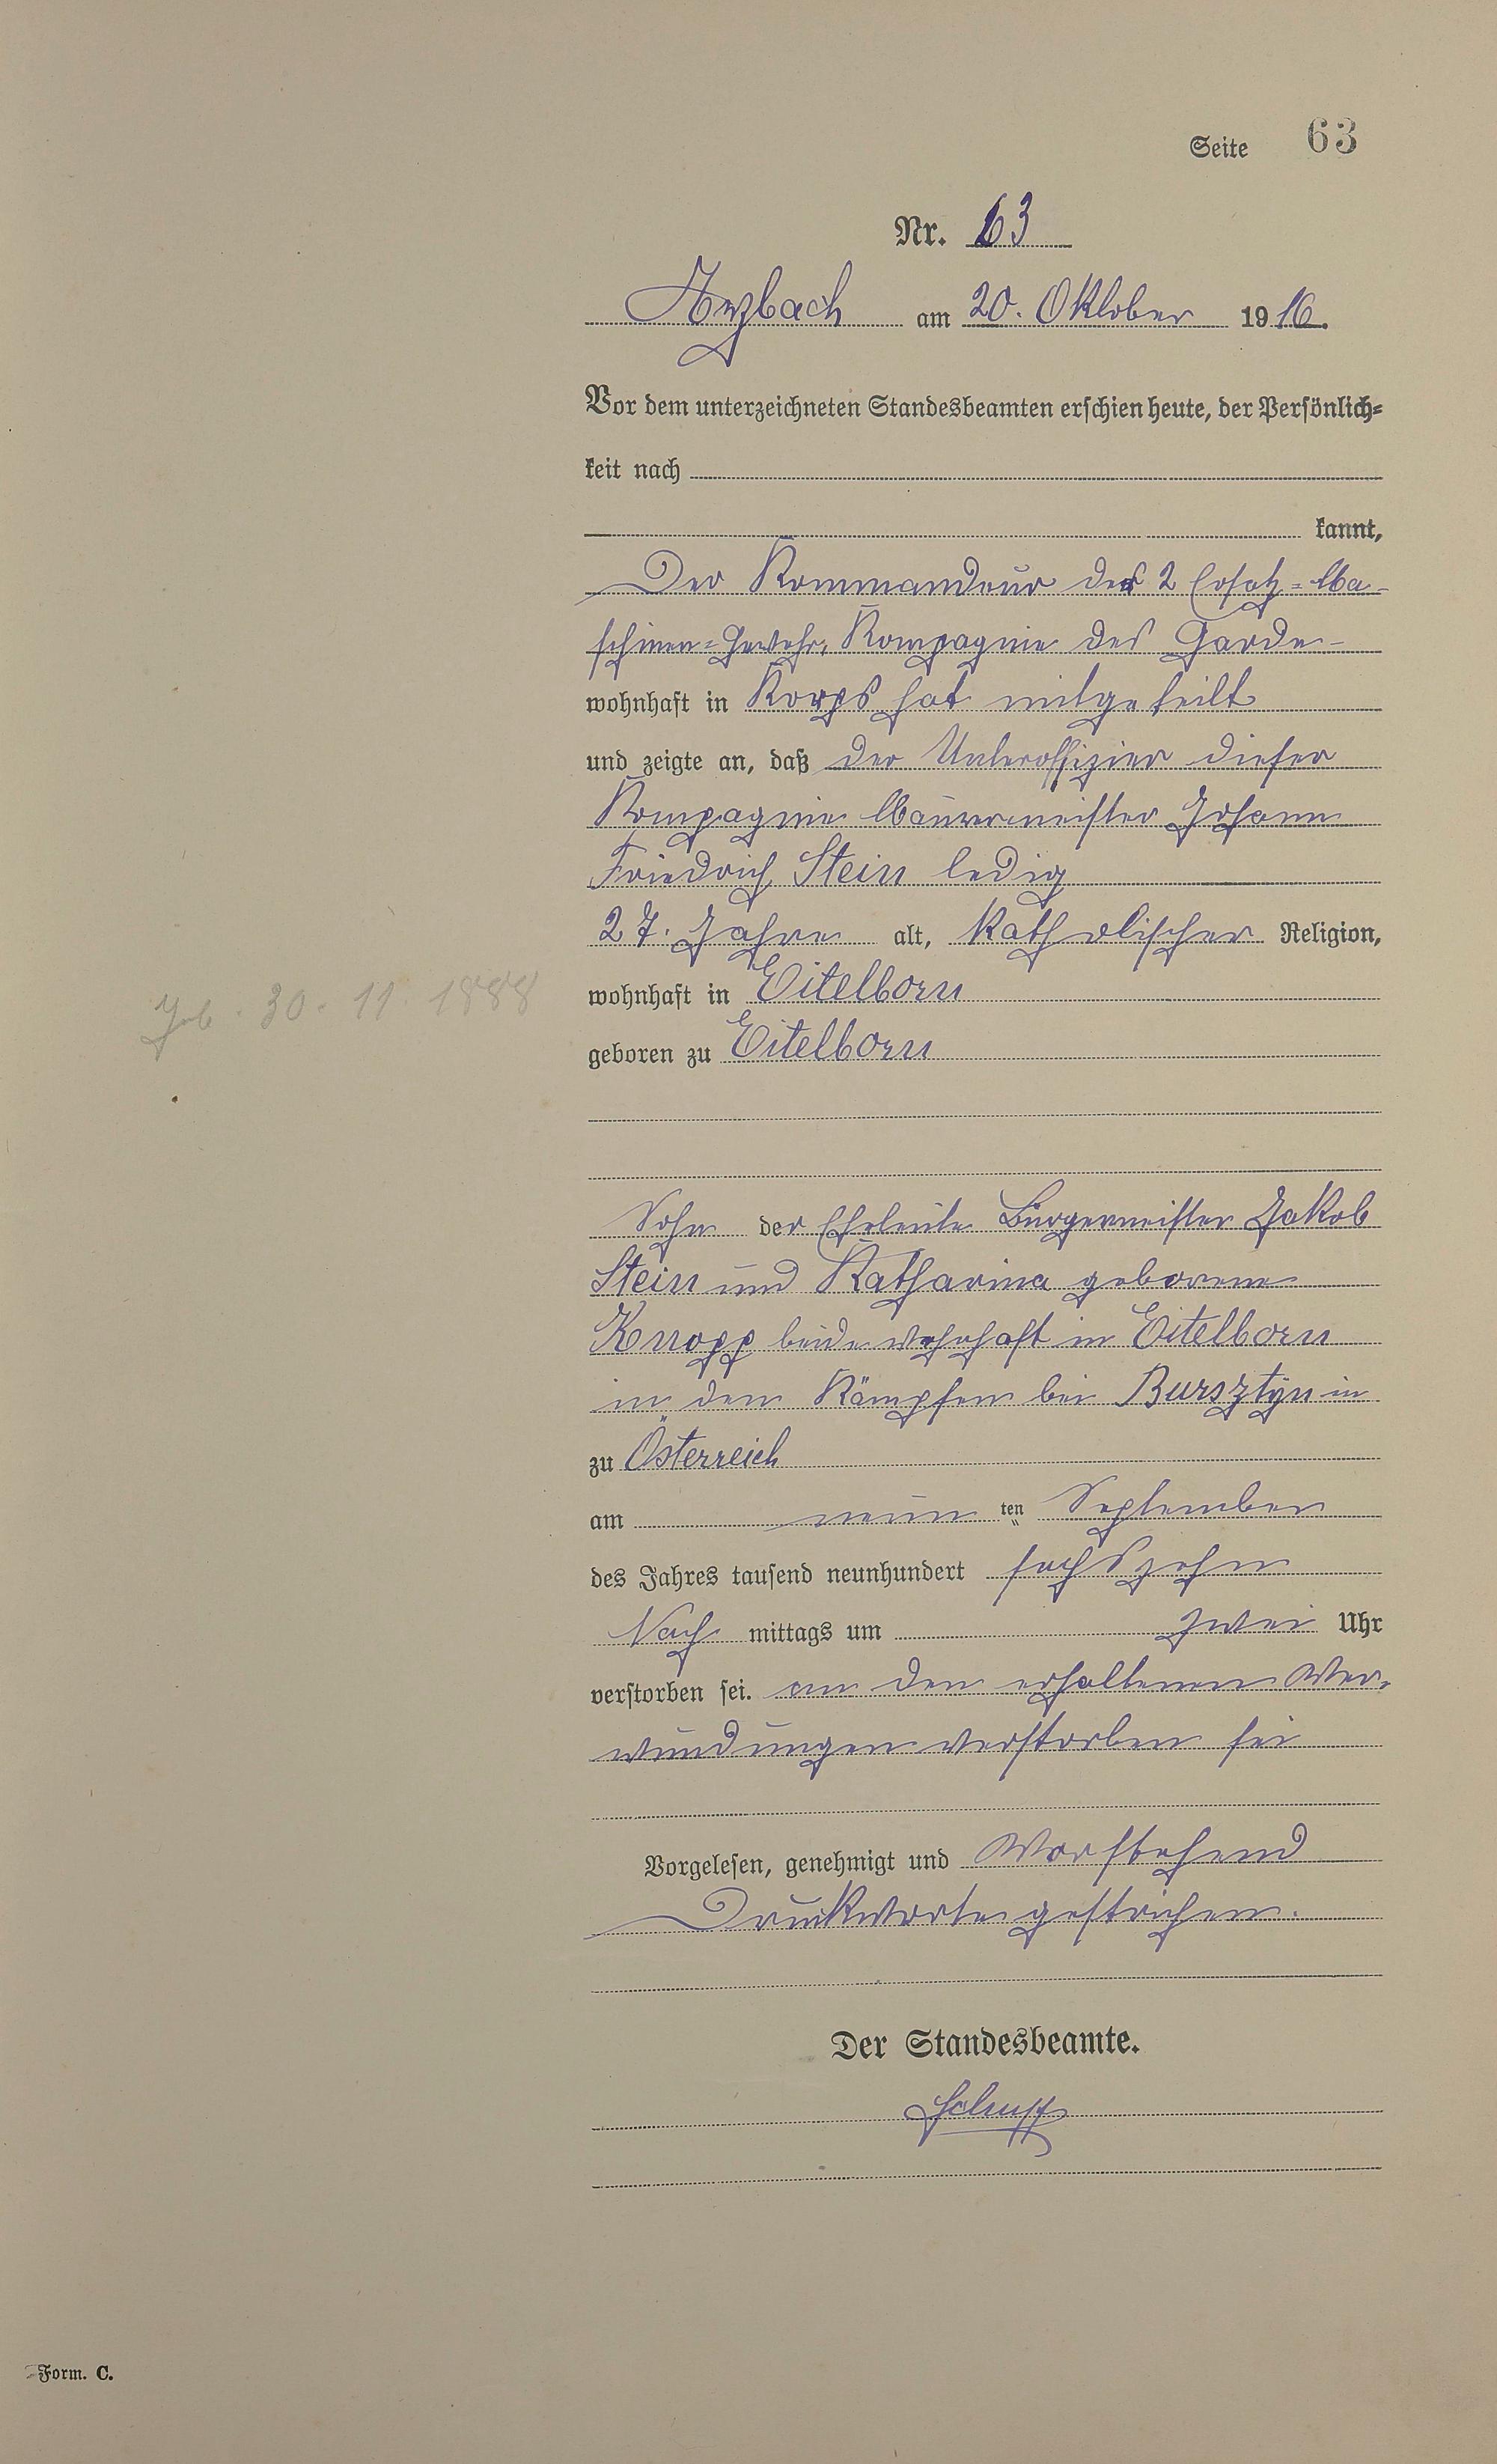 Seite 63
Nr. 63
Arzbach am 20. Oktober 1916.
Vor dem unterzeichneten Standesbeamten erschien heute, der Persönlich=
keit nach
kannt,
Der Kommandeur der 2 Ersatz=Ma-
schinen=Gewehr, Kompagnie des Garde-
wohnhaft in Korps hat mitgeteilt
und zeigte an, daß der Unteroffizier dieser
Kompagnie Maurermeister Johann
Friedrich Stein ledig
27. Jahre alt, katholischer Religion,
wohnhaft in Eitelborn
Geb. 30. 11. 1888
geboren zu Eitelborn
Sohn der Eheleute Bürgermeister Jakob
Stein und Katharina geborene
Knopp beide wohnhaft in Eitelborn
in den Kämpfen bei Bursztyn in
zu Österreich
am neun ten September
des Jahres tausend neunhundert sechszehn
Nach mittags um zwei Uhr
verstorben sei. an den erhaltenen Ver-
wundungen verstorben sei
Vorgelesen, genehmigt und Vorstehend
Druckworte gestrichen.
Der Standesbeamte.
Form. C.